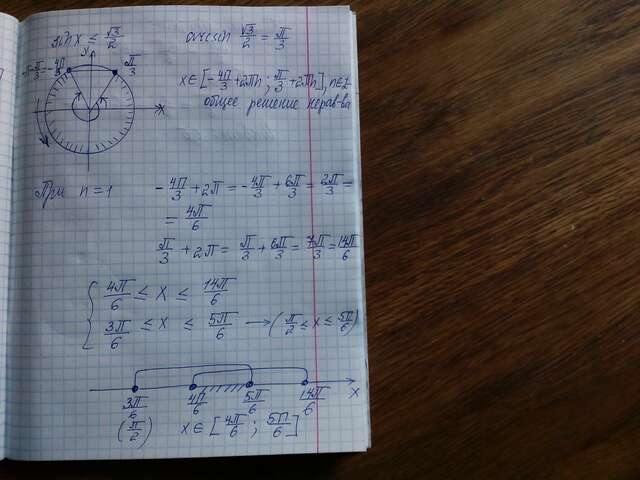 sin x ≤ √3/2
arcsin √3/2 = π/3
y
-π-π/3=-4π/3
π/3
x
x∈[-4π/3+2πn; π/3+2πn], n∈Z
общее решение нерав-ва
При n=1 -4π/3+2π=-4π/3+6π/3=2π/3=
=4π/6
π/3+2π=π/3+6π/3=7π/3=14π/6
{ 4π/6 ≤ x ≤ 14π/6
3π/6 ≤ x ≤ 5π/6 → (π/2 ≤ x ≤ 5π/6)
3π/6 4π/6 5π/6 14π/6 x
(π/2) x∈[4π/6; 5π/6]